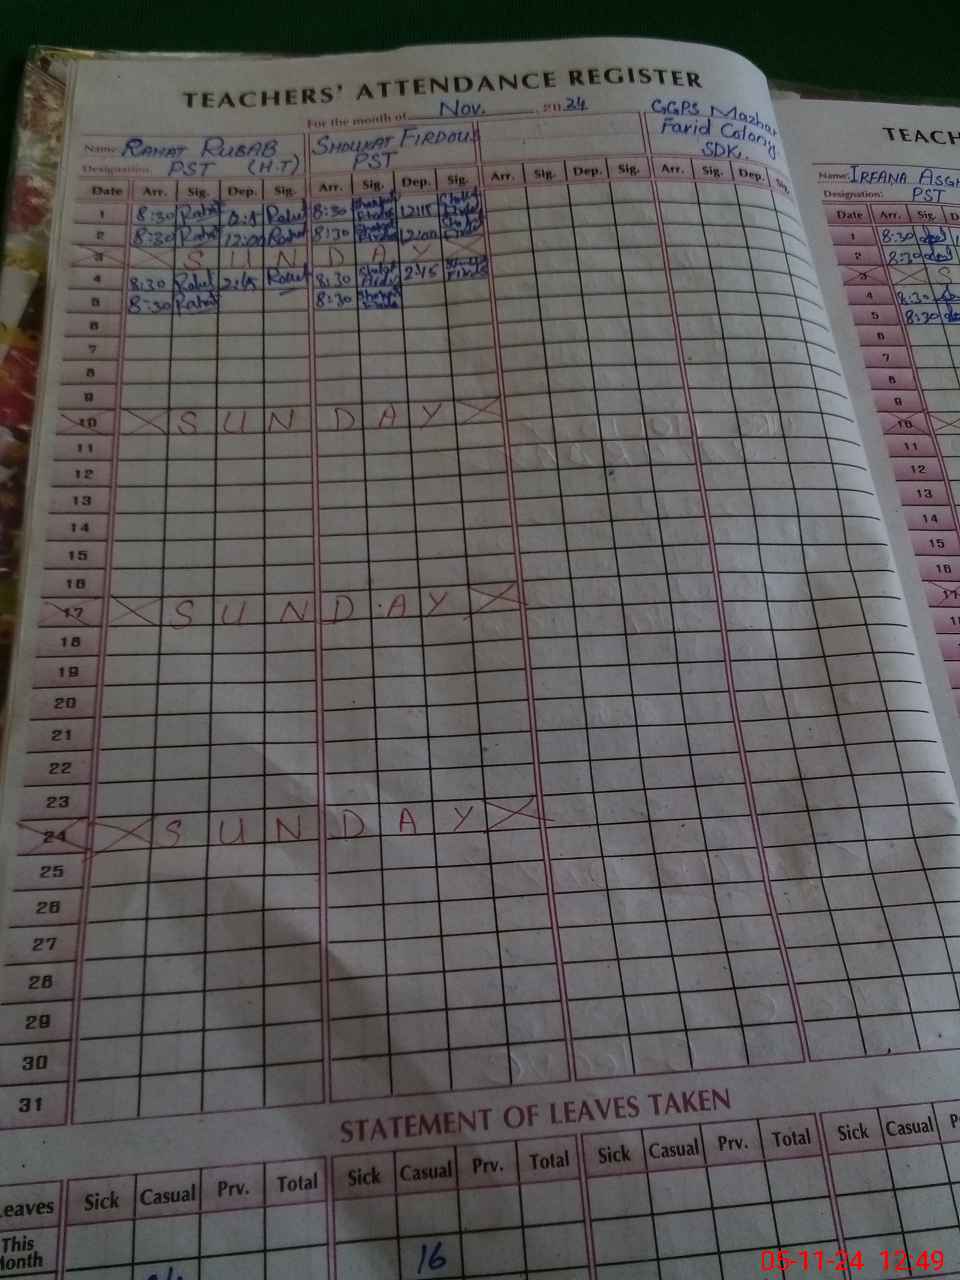 TEACHERS' ATTENDANCE REGISTER
For the month of Nov. 2024
GGPS Mazhar
Farid Colony
SDK.
Name: RAHAT RUBAB SHOUKAT FIRDOUS
Designation: PST (H.T) PST
Date Arr. Sig. Dep. Sig. Arr. Sig. Dep. Sig. Arr. Sig. Dep. Sig. Arr. Sig. Dep. Sig.
1 8:30 Rahat Rahat 8:30 12:15
2 8:30 Rahat 12:00 Rahat 8:30 12:00
3 SUNDAY
4 8:30 Rahat 2:15 Rahat 8:30 2:15
5 8:30 Rahat 8:30
6
7
8
9
10 SUNDAY
11
12
13
14
15
16
17 SUNDAY
18
19
20
21
22
23
24 SUNDAY
25
26
27
28
29
30
31
STATEMENT OF LEAVES TAKEN
Leaves Sick Casual Prv. Total Sick Casual Prv. Total Sick Casual Prv. Total Sick Casual
This
Month 16
TEACH
Name: IRFANA ASGH
Designation: PST
Date Arr. Sig. D
1 8:30
2 8:30
3 S
4 8:30
5 8:30
6
7
8
9
10
11
12
13
14
15
16
17
05-11-24 12:49